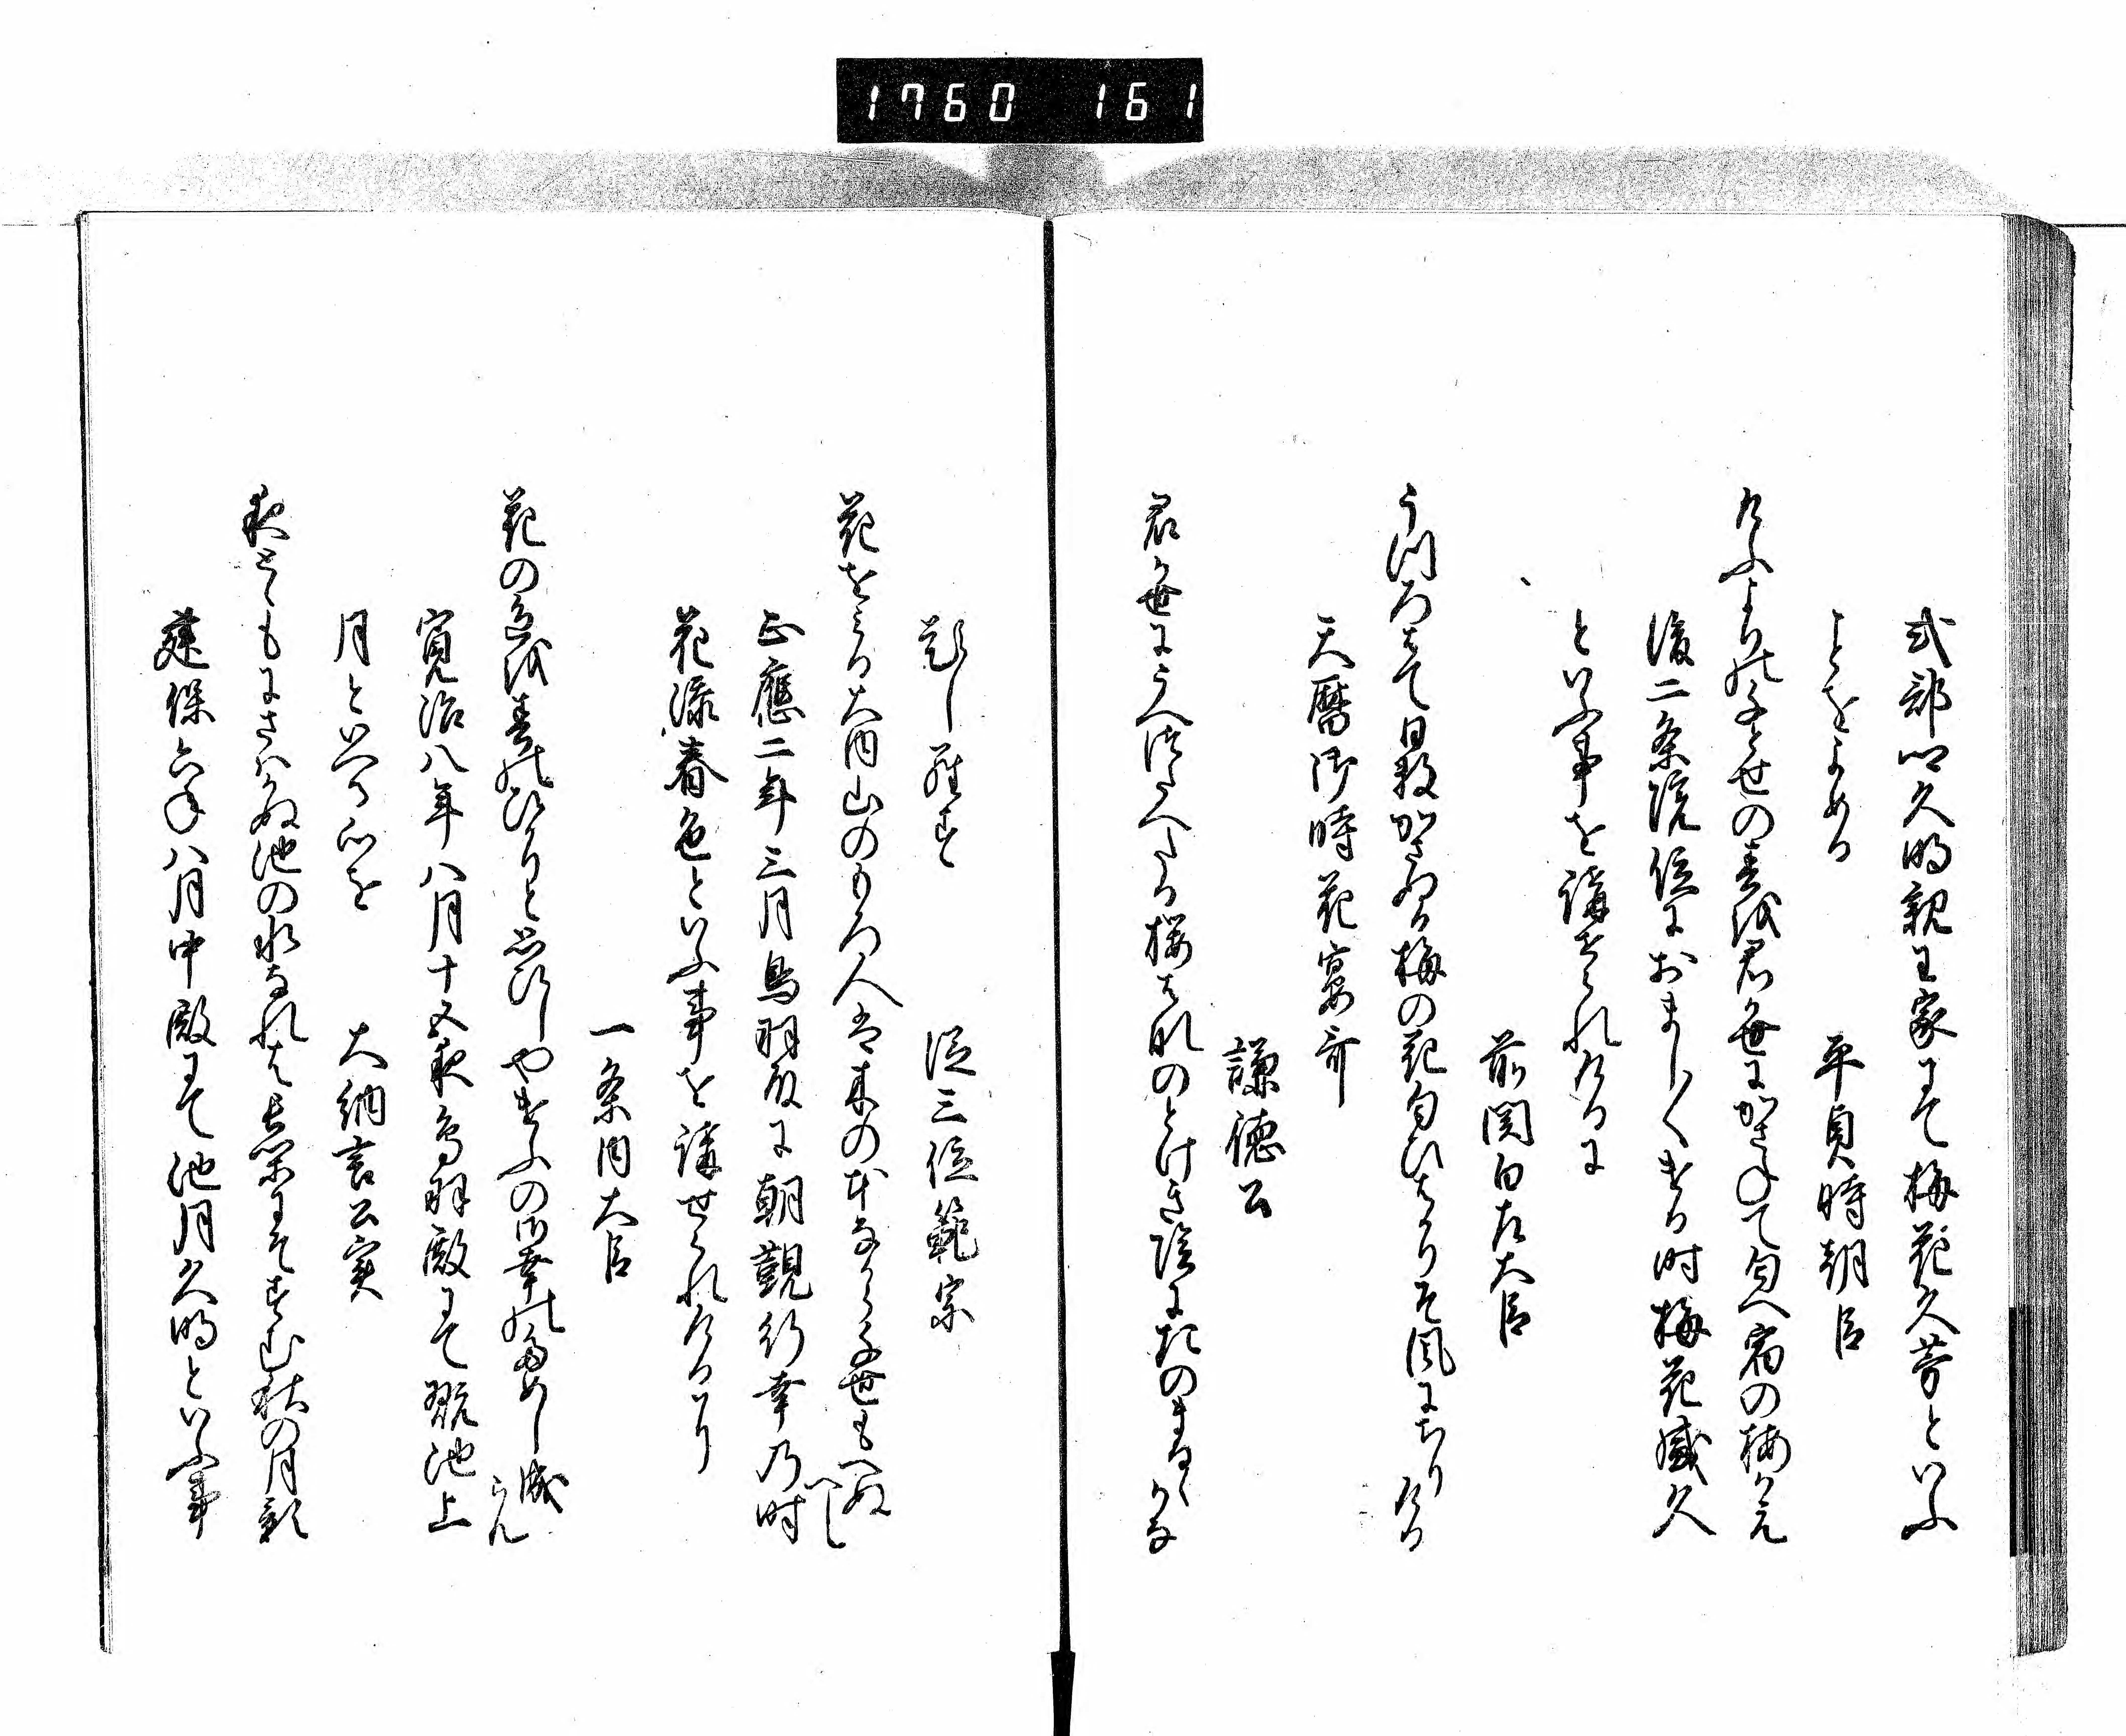 1760 161
式部卿久明親王家にて梅花久芳といふ
ことをよめる
平貞時朝臣
けふよりの千とせの春は君か世にかさねて匂へ宿の梅かえ
後二条院位におまし〱ける時梅花盛久
といふ事を講せられけるに
前関白左大臣
うつろはて日数かさぬる梅の花匂ひはかりそ風にちりける
天暦御時花宴哥
謙徳公
君か世に
桜はなのとけき陰にたのまるゝかな
題しらす
従三位範宗
花をみる大内山のもろ人は木の本なから千世もへぬへし
正應二年三月鳥羽殿に朝覲行幸乃時
花添春色といふ事を講せられけるに
一条内大臣
花の色は春のひかりと
やけふの御幸のためし成らん
寛治八年八月十五夜鳥羽殿にて翫池上
月といへる心を
大納言公実
夜とゝもにさはかぬ池の水なれは
すむ秋の月影
建保六年八月中殿にて池月久明といふ事